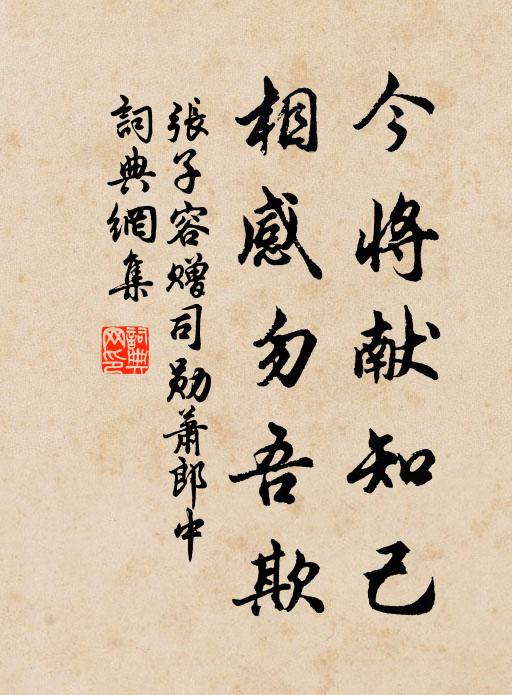 今将献知己
相感勿吾欺
張子容赠司勋萧郎中
詞典網集
詞典网印